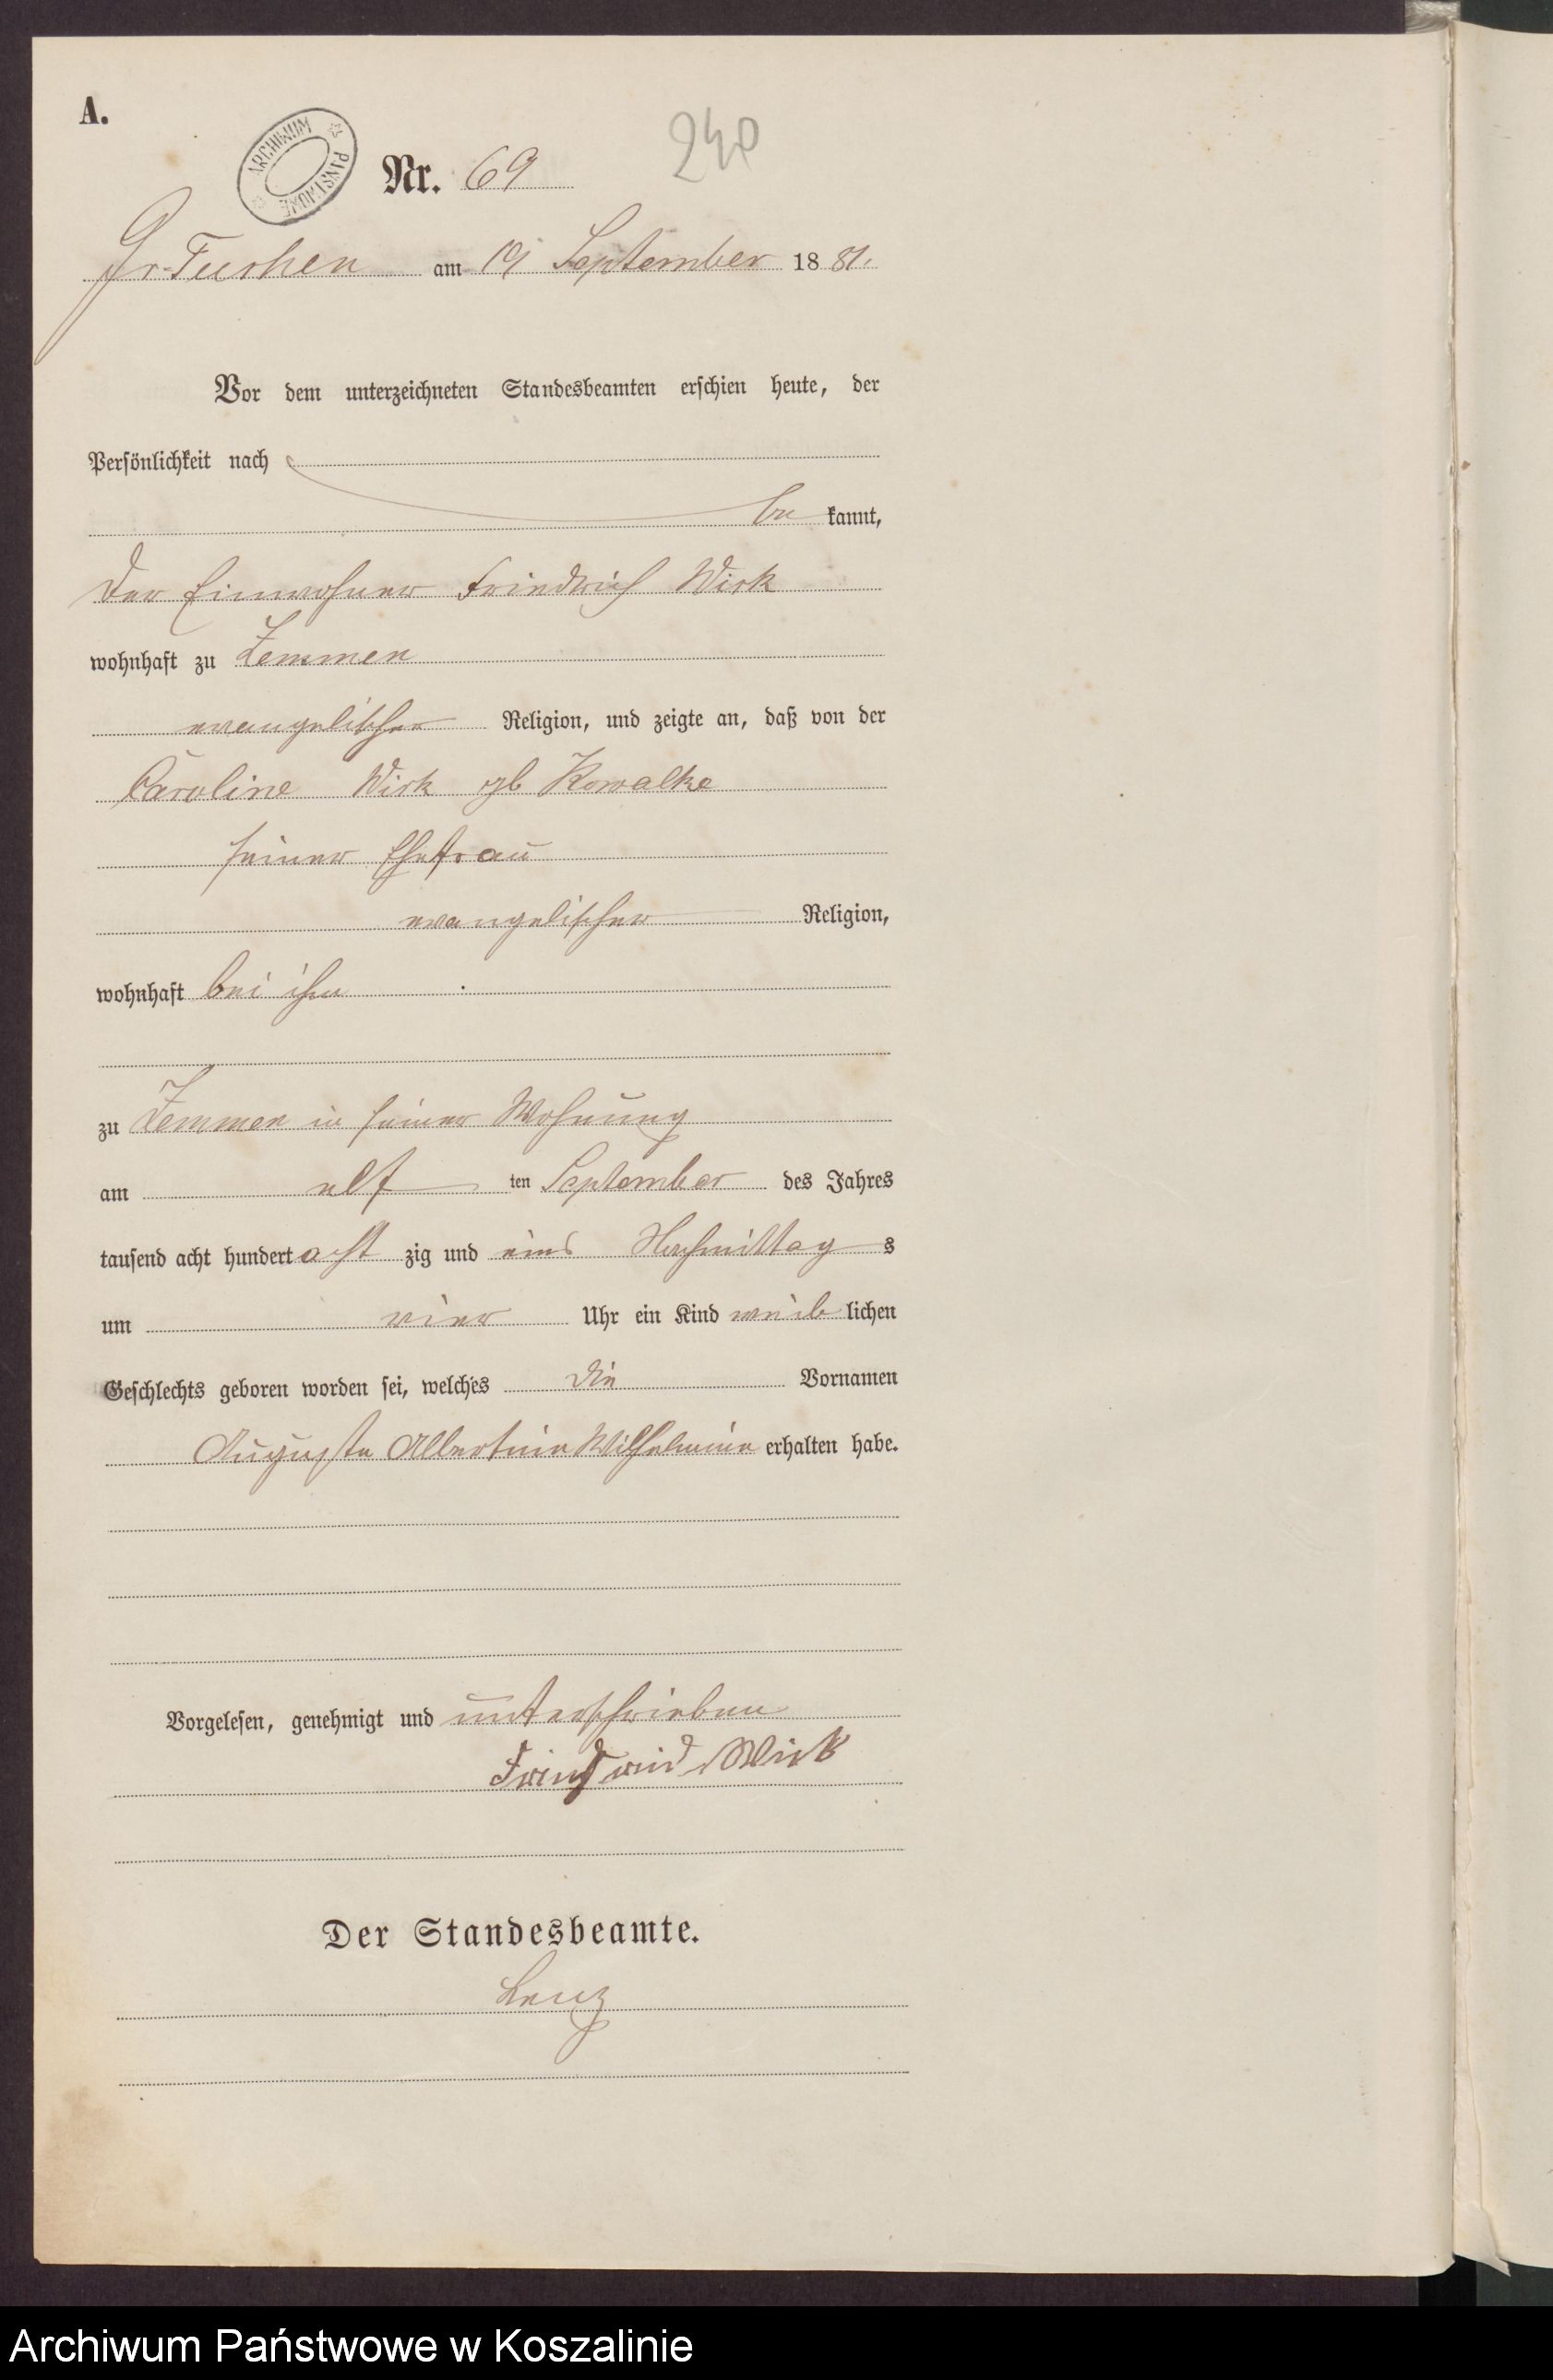 A.
ARCHIWUM PAŃSTWOWE
Nr. 69
240
Gr-Tuchen am 19 September 1881.
Vor dem unterzeichneten Standesbeamten erschien heute, der
Persönlichkeit nach
be kannt,
Der Einwohner Friedrich Wirk
wohnhaft zu Zemmen
evangelischer Religion, und zeigte an, daß von der
Caroline Wirk gb Kowalke
seiner Ehefrau
evangelischer Religion,
wohnhaft bei ihm
zu Zemmen in seiner Wohnung
am elf ten September des Jahres
tausend acht hundert acht zig und eins Nachmittag s
um vier Uhr ein Kind weib lichen
Geschlechts geboren worden sei, welches die Vornamen
Auguste Albertine Wilhelmine erhalten habe.
Vorgelesen, genehmigt und unterschrieben
Wirk
Der Standesbeamte.
Lenz
Archiwum Państwowe w Koszalinie